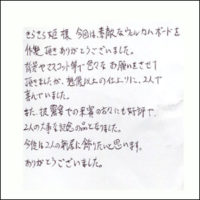 きらきら姫 様 今回は、素敵なウェルカムボードを
作製 頂きありがとうございました。
背景やマスコット等で色々なお願いをさせて
頂きましたが、想像以上の仕上りに、2人で
喜んでいました。
また、披露宴での来賓の方々にも好評で、
2人の大事な記念の品となりました。
今後は2人の新居に飾りたいと思います。
ありがとうございました。